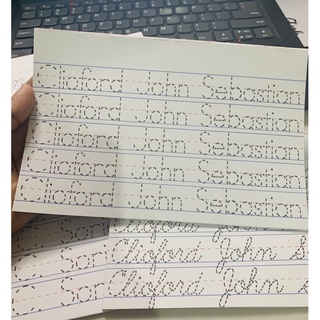 Clioford John Sebastian
Clioford John Sebastian
Clioford John Sebastian
Clioford John Sebastian
Clioford John Sebastian
Clioford John
Clioford John